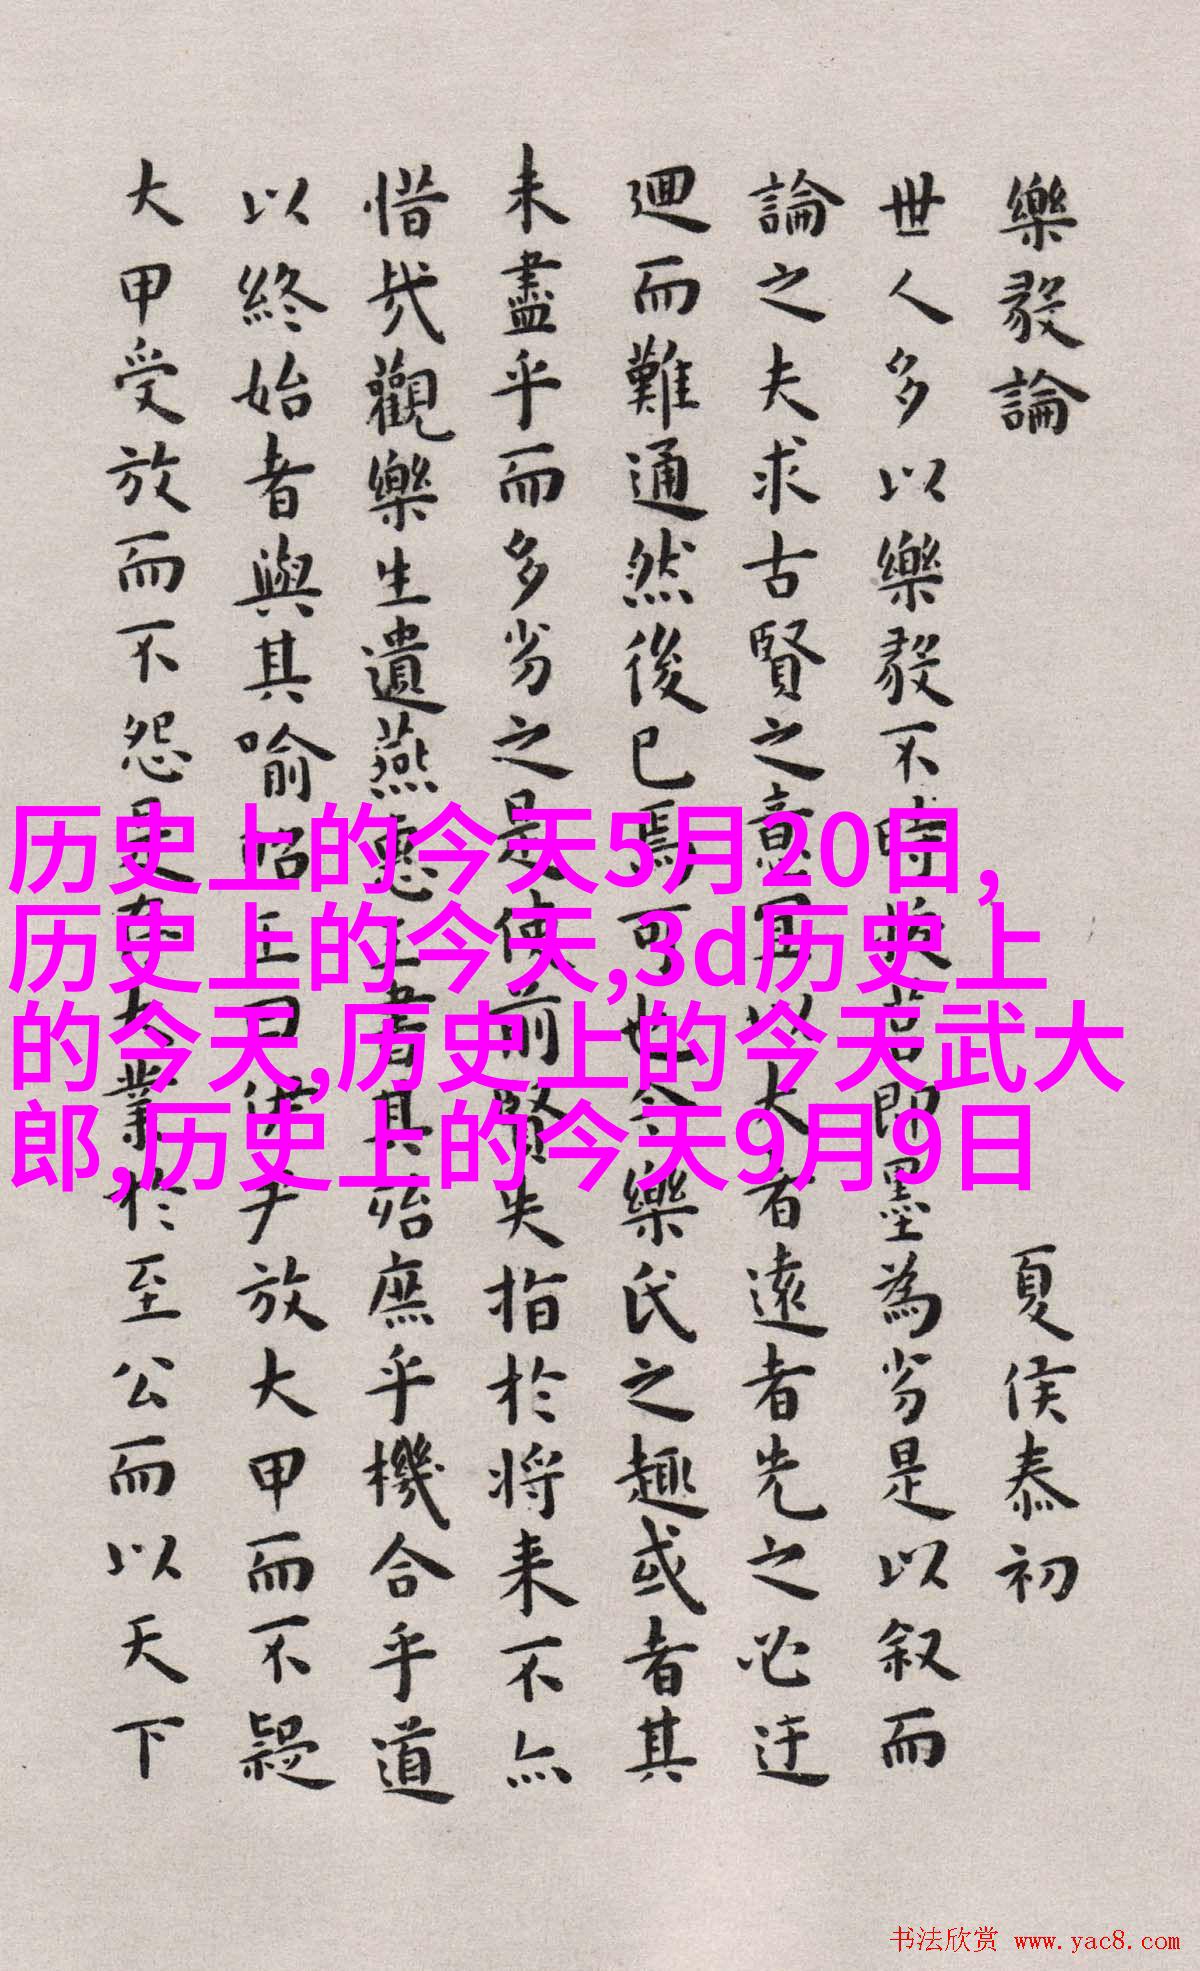 樂毅論 夏侯泰初
世人多以樂毅不時拔莒即墨為劣是以叙而
論之夫求古賢之意宜以大者遠者先之必迂
迴而難通然後已焉可也今樂氏之趣或者其
未盡乎而多劣之是使前賢失指於將来不亦
惜哉觀樂生遺燕惠王書其殆庶乎機合乎道
以終始者與其喻昭王曰伊尹放大甲而不疑
大甲受放而不怨是存大業於至公而以天下
历史上的今天5月20日,
历史上的今天,3d历史上
的今天,历史上的今天武大
郎,历史上的今天9月9日
书法欣赏 www.yac8.com